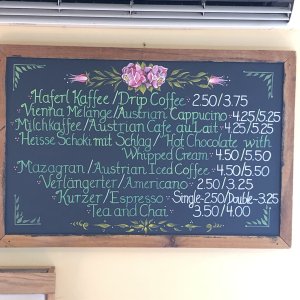 Haferl Kaffee/Drip Coffee - 2.50/3.75
Vienna Melange/Austrian Cappucino - 4.25/5.25
Milchkaffee/Austrian Cafe au Lait - 4.25/5.25
Heisse Schoki mit Schlag/Hot Chocolate with
Whipped Cream - 4.50/5.50
Mazagran/Austrian Iced Coffee - 4.50/5.50
Verlängerter/Americano - 2.50/3.25
Kurzer/Espresso Single-2.50/Double-3.25
Tea and Chai - 3.50/4.00